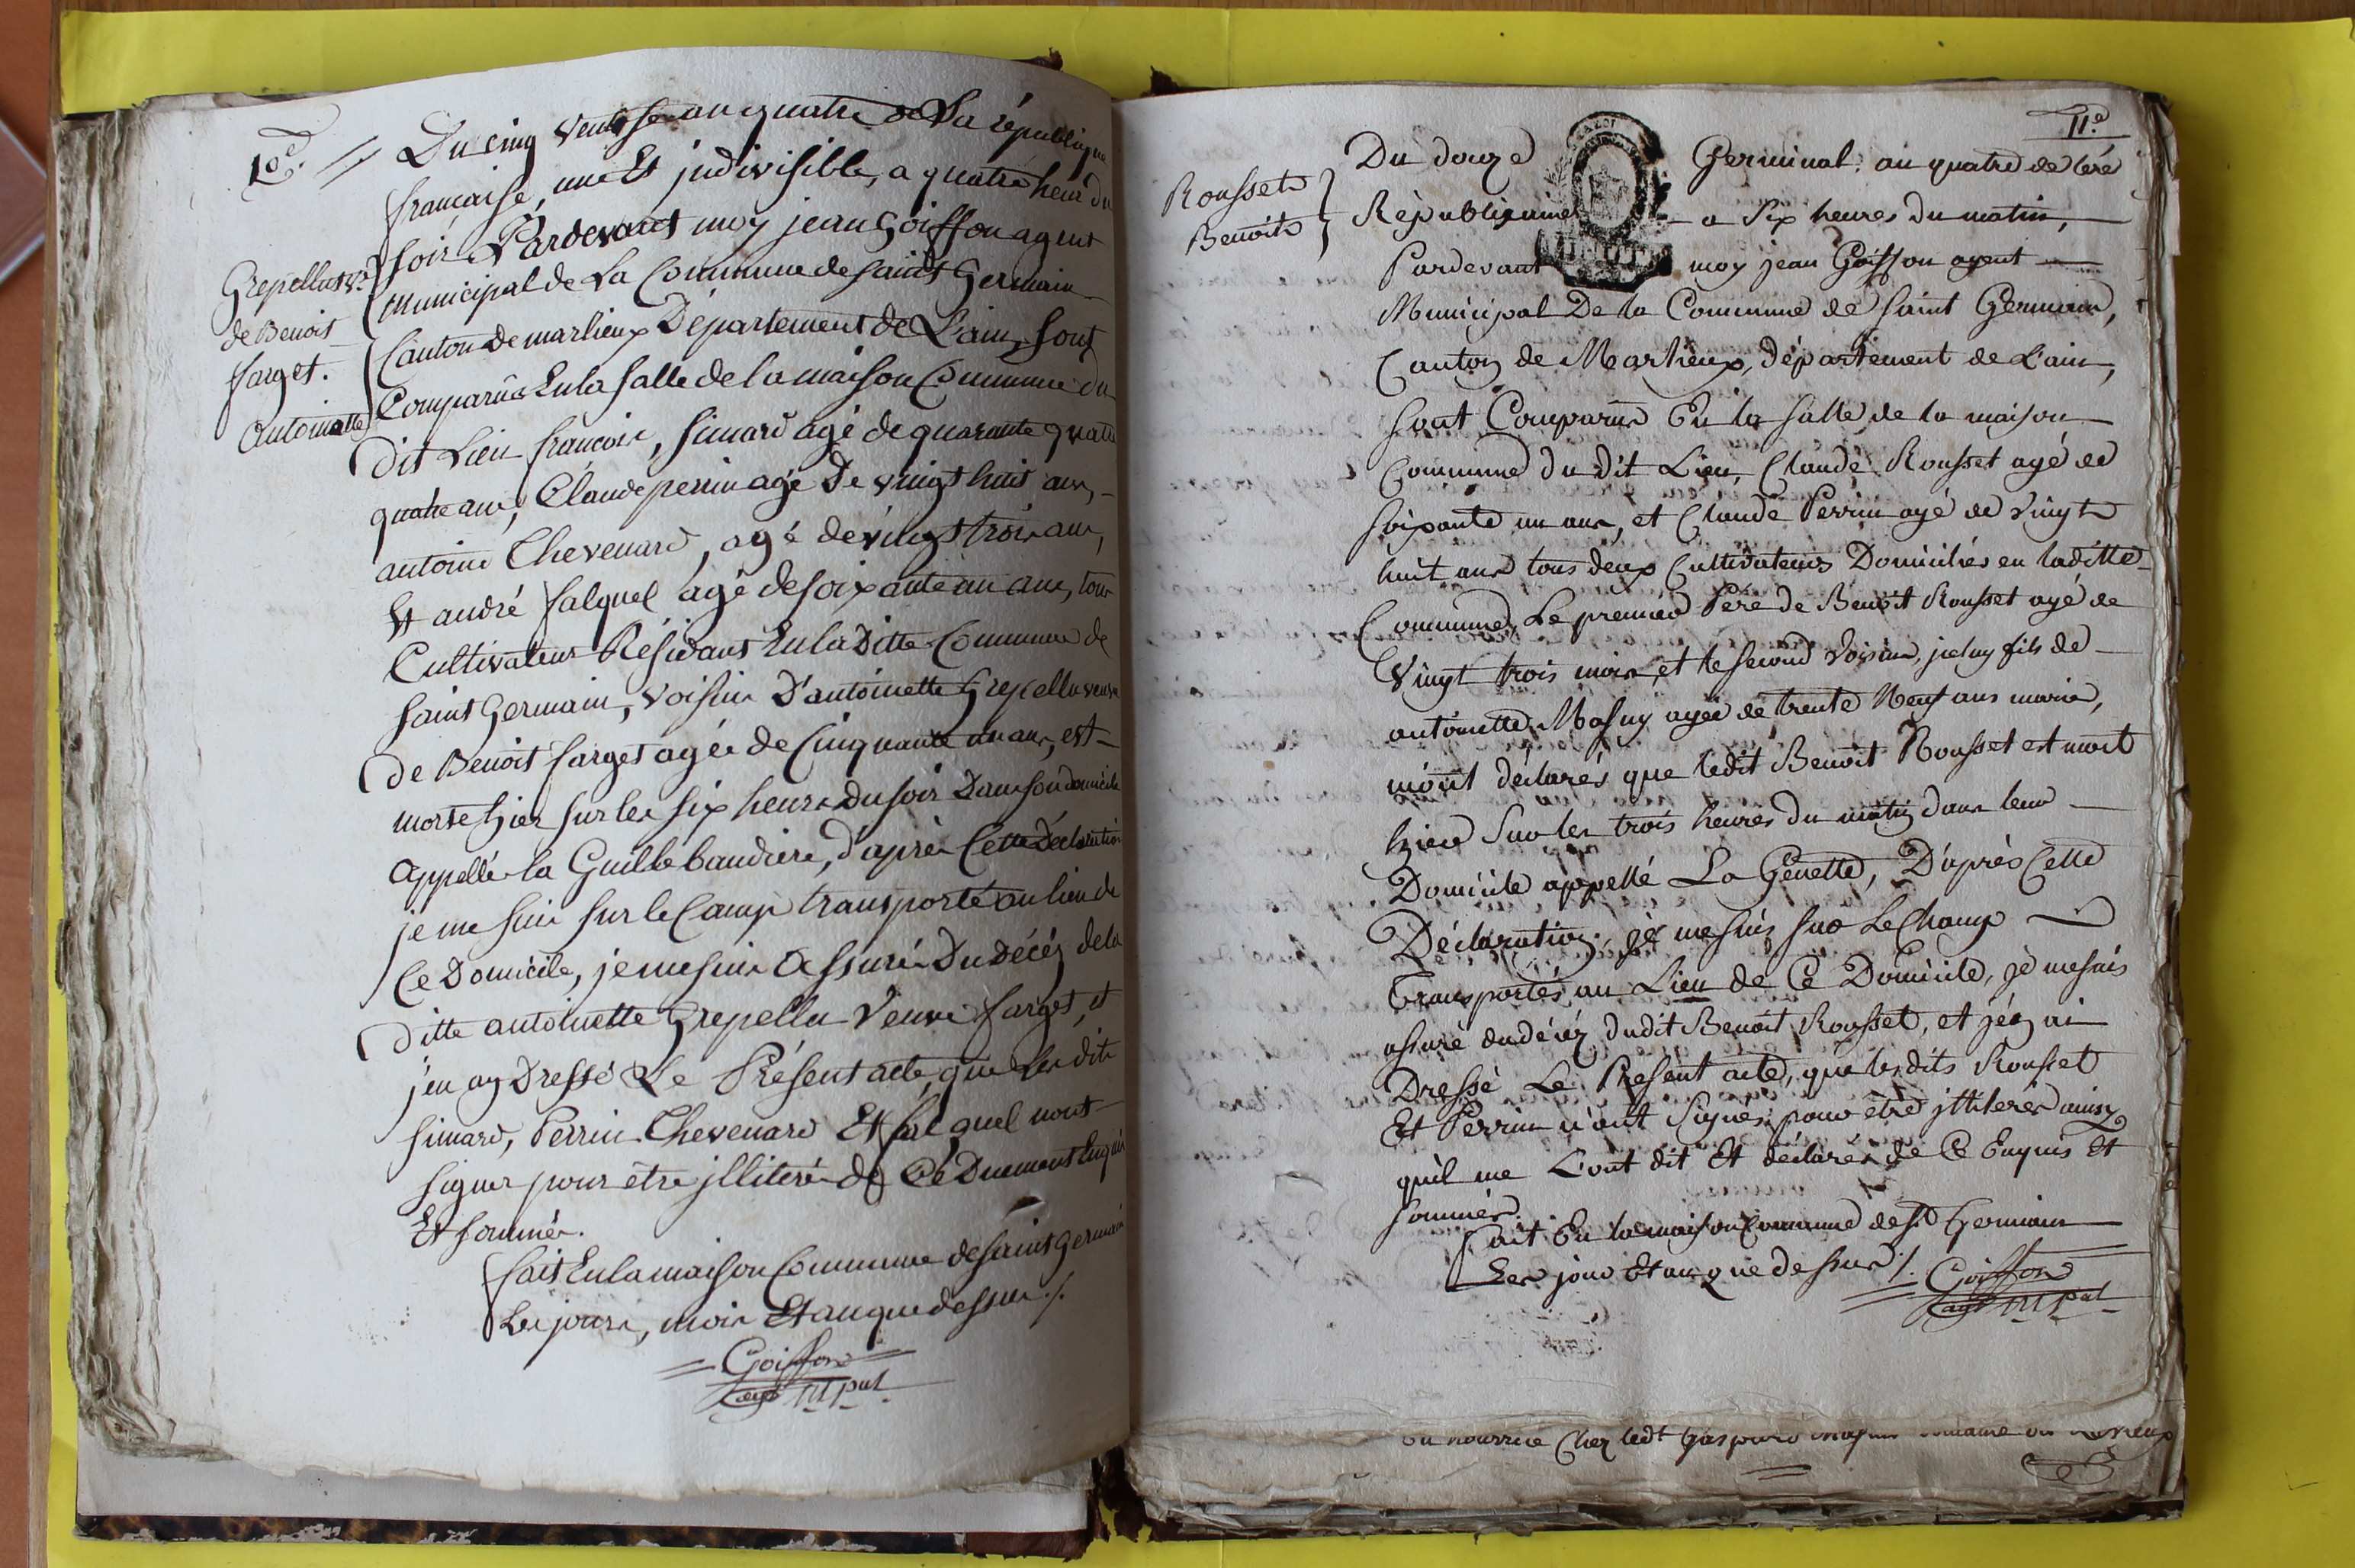 10e.
Du cinq ventose an quatre de La république
française, une Et jndivisible, a quatre heur du
soir Pardevant moy jean Goiffon agent
municipal de La Commune de saint Germain
Canton de marlieux Département de L'ain, sont
Comparûs En la salle de la maison Commune du
dit Lieu françois, simard agé de quarante quatre
quatre ans, Claude perin agé De vingt huit ans,
antoine Chevenard, agé de vingt trois ans,
Et andré falquel agé de soixante un ans, tous
Cultivateurs Résidants En la Ditte Commune de
saint Germain, voisins D'antoinette Grepellu veuve
de Benoit farget agée de Cinquante un ans, est
morte hier sur les six heures Du soir Dans son domicile
appellé la Guillebaudiere, d'après Cette Déclaration
je me suis sur le Camp transporté au lieu de
Ce Domicile, je me suis assuré Du Décéz de la
Ditte antoinette Grepellu veuve farget, et
j'en ay Dressé Le Présent acte, que Les dits
simard, Perrin Chevenard Et falquel n'ont
signer pour être jlliteré de Ce Duement Enquis
Et sommés.
fait En la maison Commune de saint Germain
les jours, mois Et an que dessus ./.
Goiffon
agt M.pal
Grepellu ve
de Benoit
farget.
Antoinette
11e
Rousset
Benoit
Du douze Germinal an quatre de l'ére
Républicaine a six heures du matin,
Pardevant moy jean Goiffon agent
Municipal De la Commune de saint Germain,
Canton de Marlieux, département de L'ain,
sont Comparus En la salle de la maison
Commune du dit Lieu, Claude Rousset agé de
soixante un ans, et Claude Perrin agé de vingt
huit ans tous deux Cultivateurs Domiciliés en laditte
Commune, Le premier Pére de Benoit Rousset agé de
Vingt trois mois, et le second voisin, jceluy fils de
antoinette Masuy agée de trente Neuf ans marié,
m'ont déclarés que ledit Benoit Rousset est mort
hier sur les trois heures du matin dans leur
Domicile appellé La Génette, D'après Cette
Déclaration, je me suis sur Le Champ
Transportés au Lieu de Ce Domicile, je me suis
assuré du décéz dudit Benoit Rousset, et j'en ai
Dressé Le Présent acte, que lesdits Rousset
Et Perrin n'ont Signés pour être jlliterés ainsy
qu'il me L'ont dit Et déclarés de Ce Enquis Et
sommés.
fait En la maison Commune de st Germain
Les jour Et an que dessus ./.
Goiffon
agt M.pal
En nourrice Chez ledt Gaspard